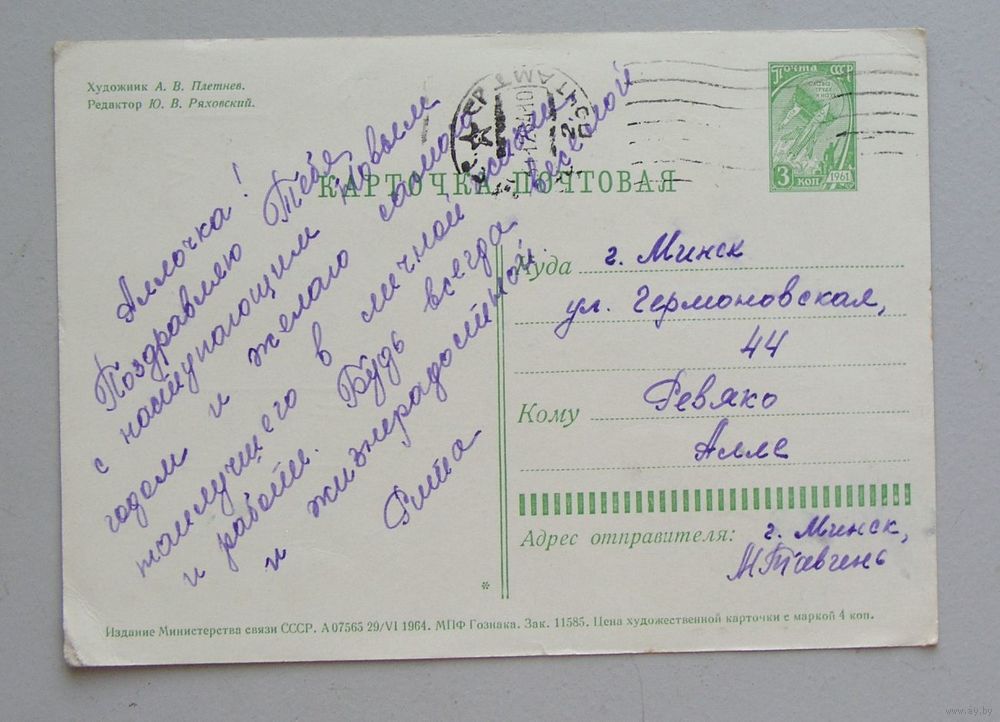 Художник А. В. Плетнев.
Редактор Ю. В. Ряховский.
Почта СССР
3 коп
1961
КАРТОЧКА ПОЧТОВАЯ
Аллочка!
Поздравляю Тебя
с наступающим Новым
годом и желаю самого
наилучшего в личной жизни
и работе. Будь всегда веселой
и жизнерадостной.
Рита
Куда г. Минск
ул. Гермоновская,
44
Кому Ревяко
Алле
Адрес отправителя: г. Минск,
М Тавгень
*
Издание Министерства связи СССР. А 07565 29/VI 1964. МПФ Гознака. Зак. 11585. Цена художественной карточки с маркой 4 коп.
www.ay.by